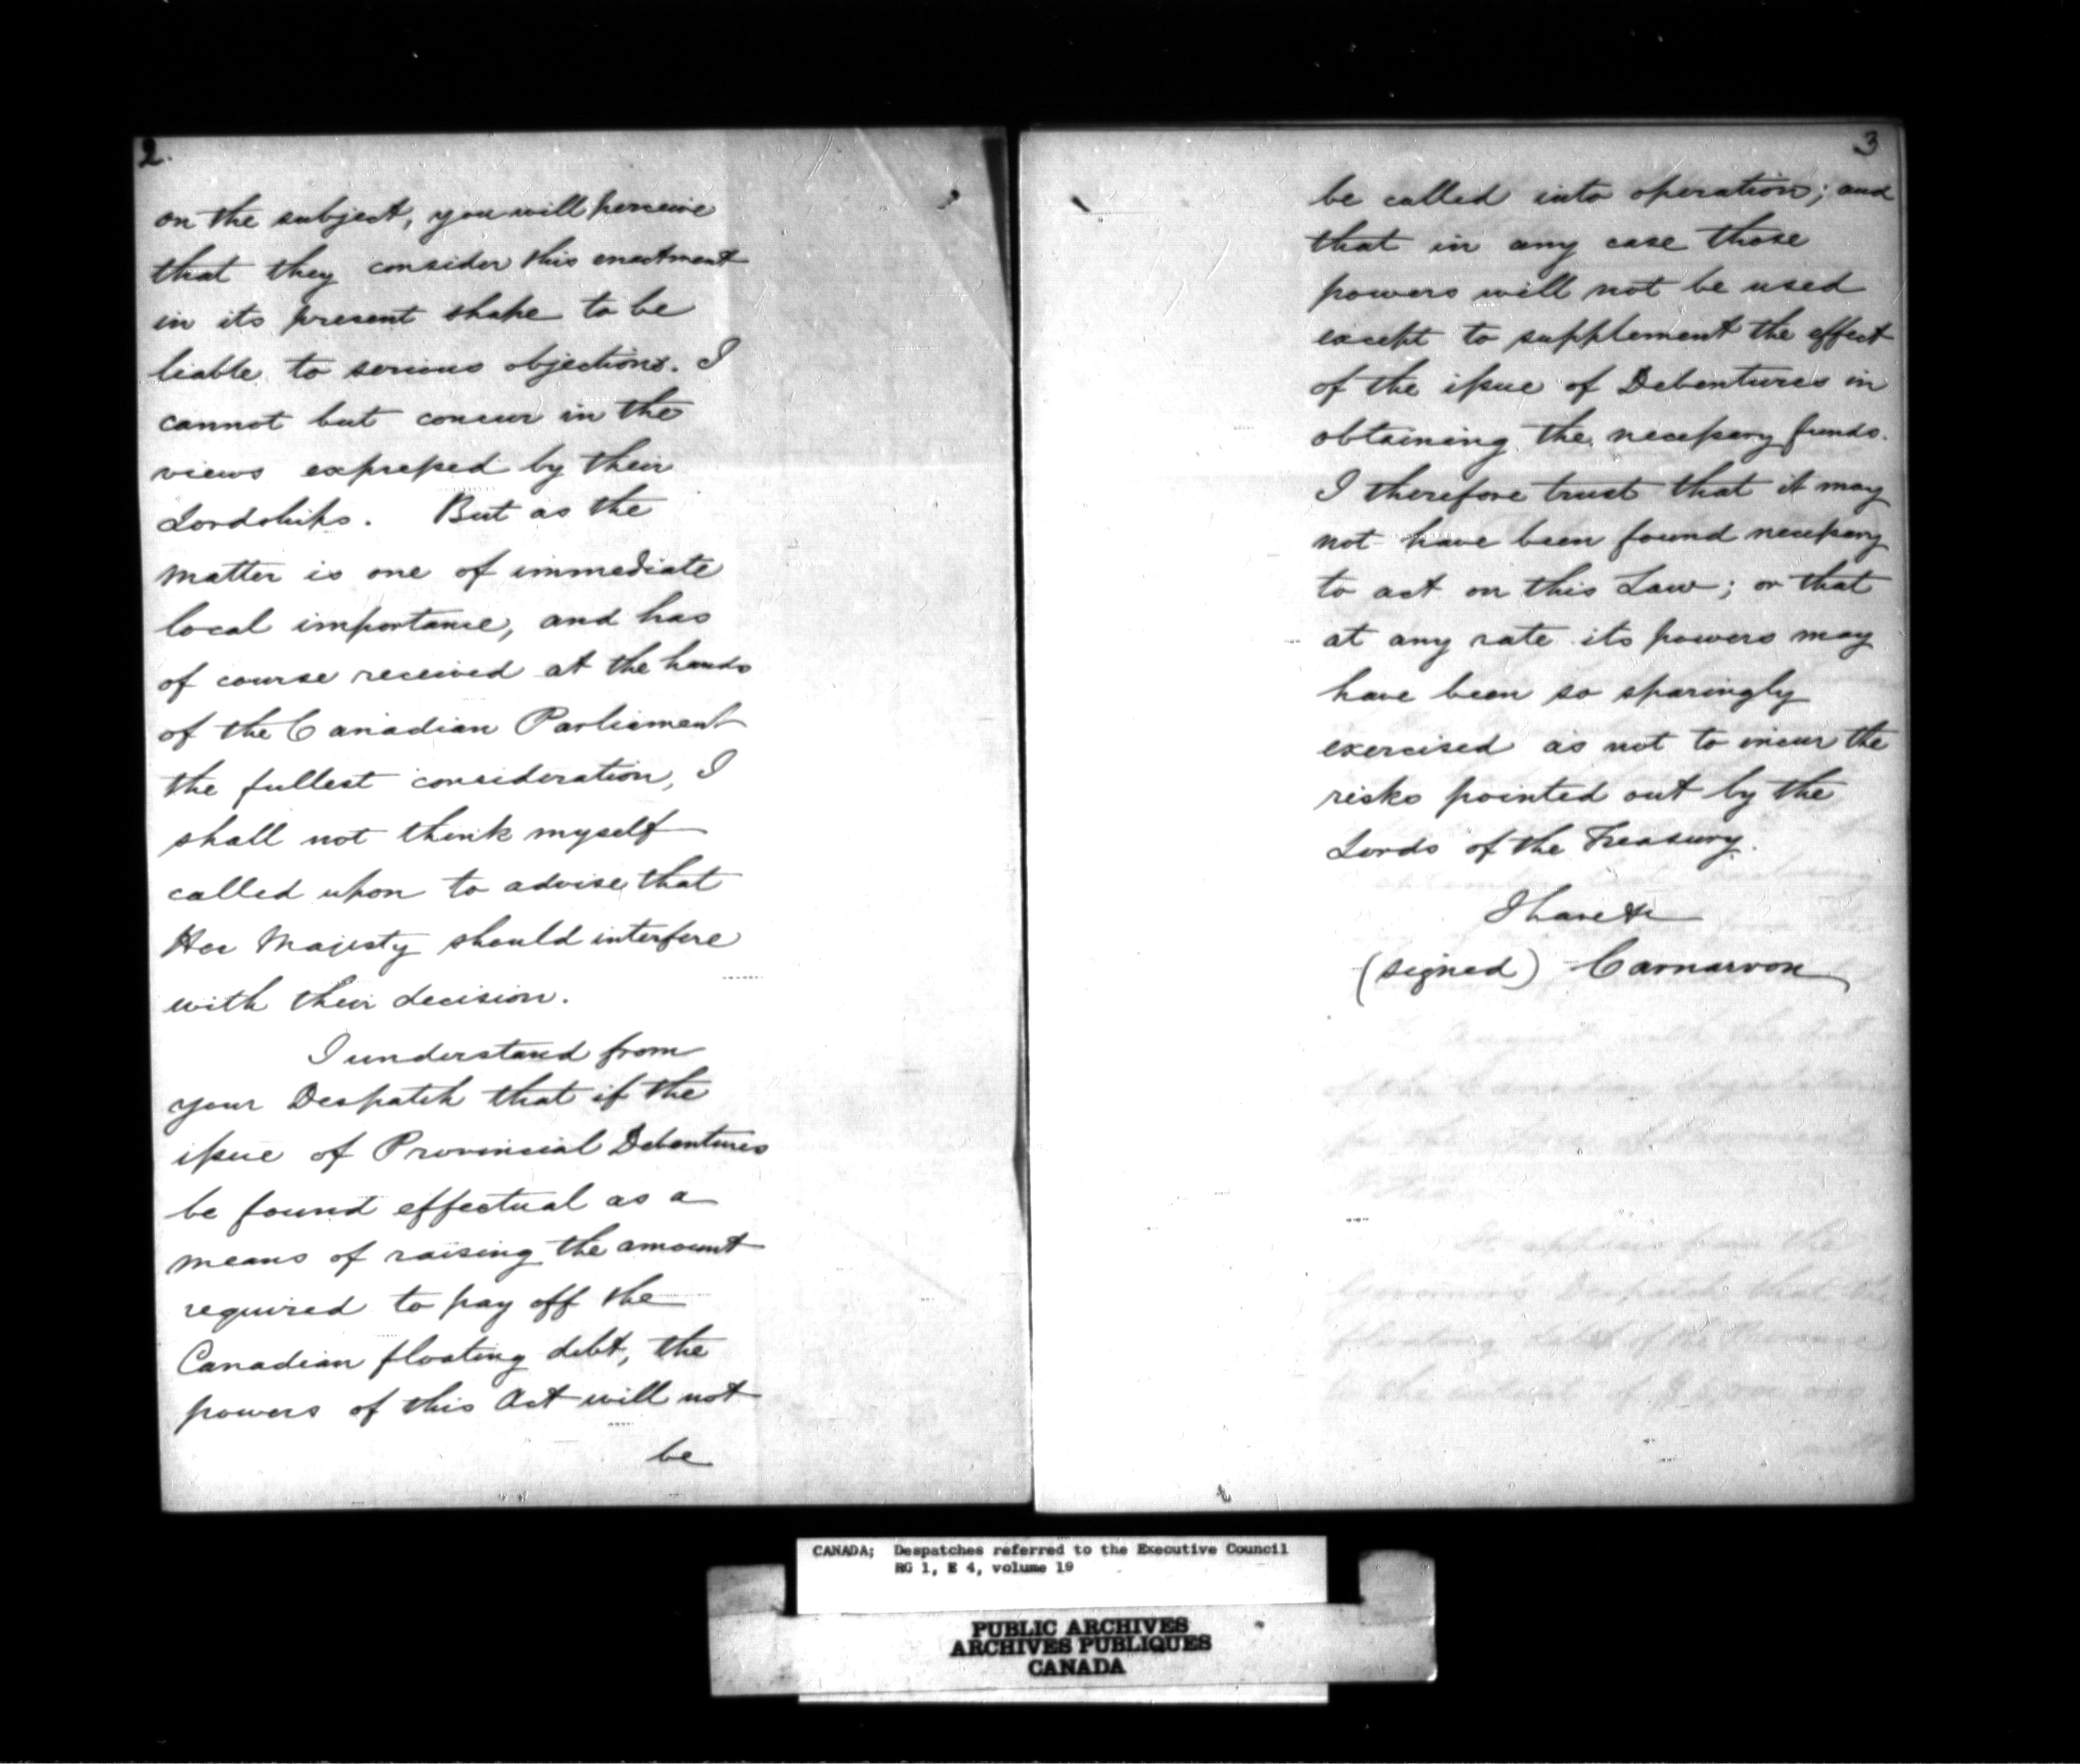 2.
on the subject, you will perceive
that they consider this enactment
in its present shape to be
liable to serious objections. I
cannot but concur in the
views expressed by their
Lordships. But as the
matter is one of immediate
local importance, and has
of course received at the hands
of the Canadian Parliament
the fullest consideration, I
shall not think myself
called upon to advise that
Her Majesty should interfere
with their decision.
I understand from
your Despatch that if the
issue of Provincial Debentures
be found effectual as a
means of raising the amount
required to pay off the
Canadian floating debt, the
powers of this Act will not
be
3
be called into operation; and
that in any case those
powers will not be used
except to supplement the effect
of the issue of Debentures in
obtaining the necessary funds.
I therefore trust that it may
not have been found necessary
to act on this Law; or that
at any rate its powers may
have been so sparingly
exercised as not to incur the
risks pointed out by the
Lords of the Treasury.
I have &c
(signed) Carnarvon
CANADA; Despatches referred to the Executive Council
RG 1, E 4, volume 19
PUBLIC ARCHIVES
ARCHIVES PUBLIQUES
CANADA